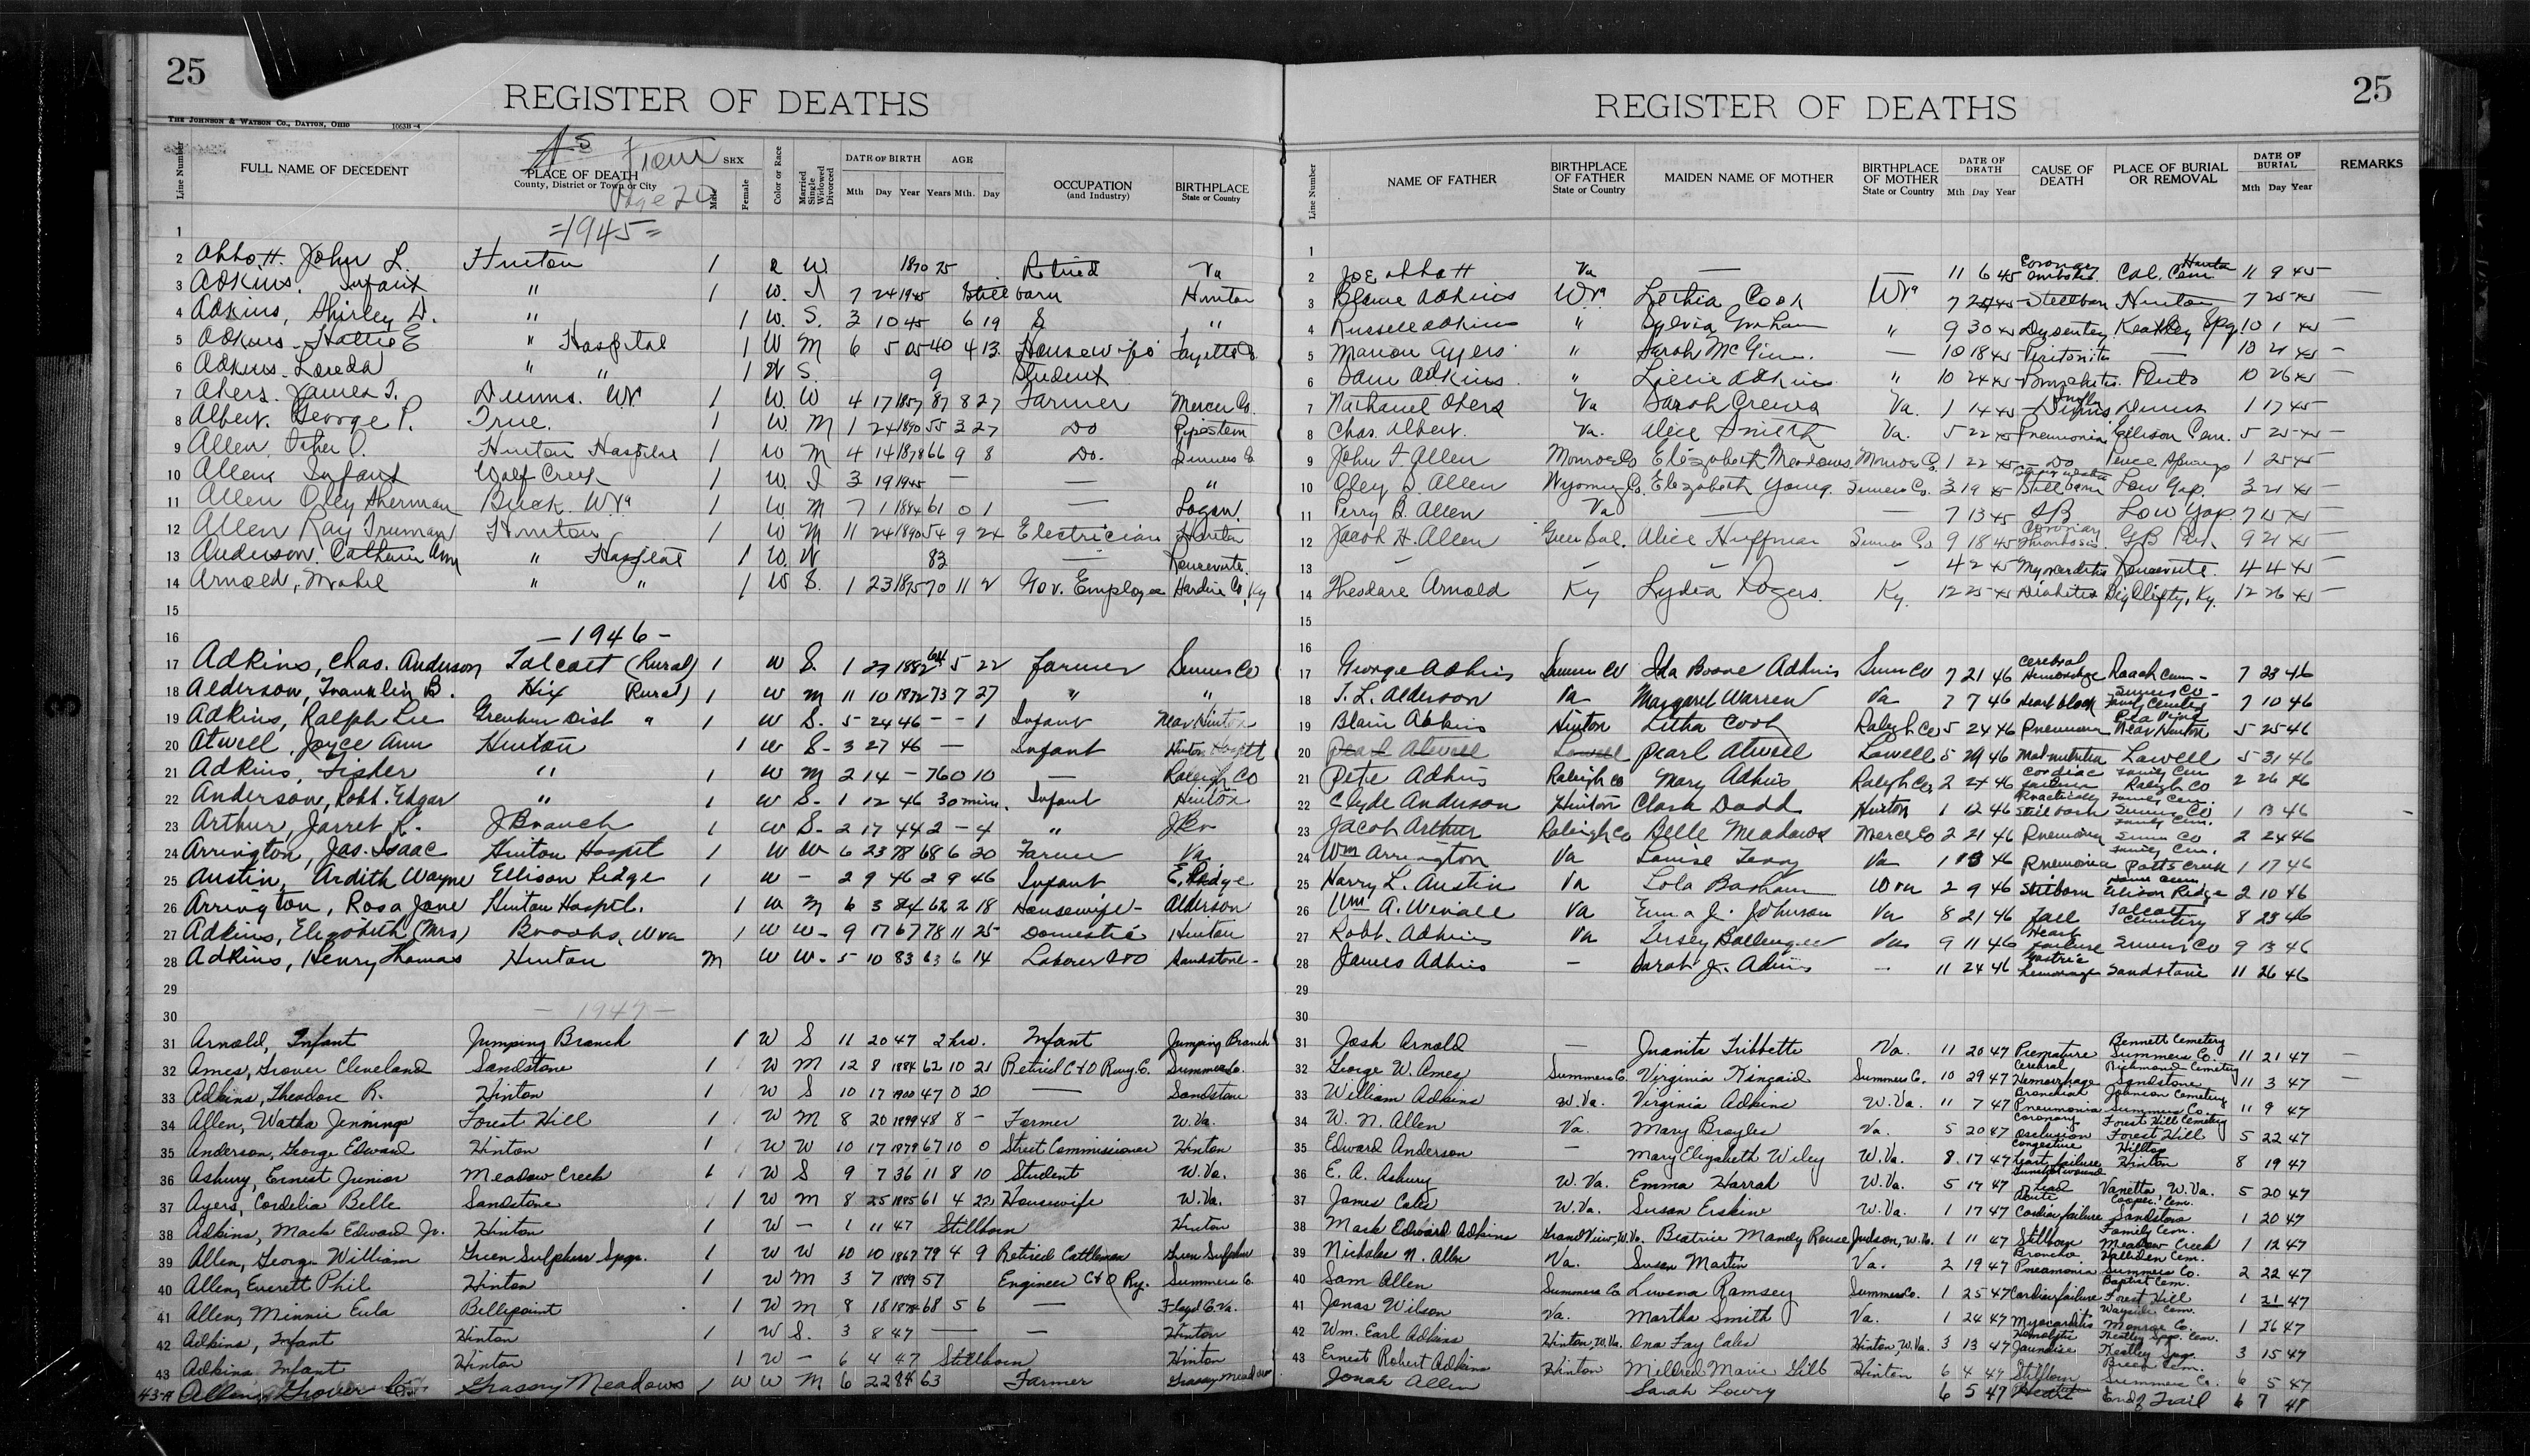 25
REGISTER OF DEATHS
THE JOHNSON & WATSON CO., DAYTON, OHIO 1063B-4
As From Page 20
Line Number FULL NAME OF DECEDENT PLACE OF DEATH County, District or Town or City SEX Male Female Color or Race Married Single Widowed Divorced DATE OF BIRTH Mth Day Year AGE Years Mth. Day OCCUPATION (and Industry) BIRTHPLACE State or Country
1 =1945=
2 Abbott John L. Hinton 1 W. 1870 75 Retired Va
3 Adkins. Infant " 1 W. I 7 24 1945 Stillborn Hinton
4 Adkins, Shirley D. " 1 W. S. 3 10 45 6 19 S "
5 Adkins. Hattie E " Hospital 1 W M 6 5 05 40 4 13 Housewife Fayette Co.
6 Adkins. Loreda " " 1 W S. 9 Student
7 Akers. James T. Dunns. W.Va 1 W. W 4 17 1857 87 8 27 Farmer Mercer Co.
8 Albert. George P. True. 1 W. M 1 24 1890 55 3 27 Do Pipestem
9 Allen, O. Hinton Hospital 1 W M 4 14 1878 66 9 8 Do. Summers Co
10 Allen Infant Wolf Creek 1 W. I 3 19 1945 — — "
11 Allen Oley Sherman Buck W.Va 1 W M 7 1 1884 61 0 1 — Logan.
12 Allen Ray Truman Hinton 1 W M 11 24 1890 54 9 24 Electrician Hinton
13 Anderson. Catherin Ann " Hospital 1 W. W 83 — Ronceverte.
14 Arnold, Mabel " " 1 W S. 1 23 1875 70 11 2 Gov. Employee Hardin Co, Ky
15
16 —1946—
17 Adkins, Chas. Anderson Talcott (Rural) 1 W S. 1 29 1882 64 5 22 farmer Summers Co
18 Alderson, Franklin B. Hix (Rural) 1 W M 11 10 1872 73 7 27 " "
19 Adkins, Ralph Lee Greenbrier Dist " 1 W S. 5 24 46 — — 1 Infant Near Hinton
20 Atwell, Joyce Ann Hinton 1 W S- 3 27 46 — Infant Hinton Hospitl
21 Adkins, Fisher " 1 W M 2 14 — 76 0 10 — Raleigh Co
22 Anderson, Robt. Edgar " 1 W S- 1 12 46 30 min. Infant Hinton
23 Arthur, Jarret K. J Branch 1 W S- 2 17 44 2 — 4 " J Br
24 Arrington, Jas. Isaac Hinton Hospt 1 W W 6 23 78 68 6 20 Farmer Va
25 Austin, Ardith Wayne Ellison Ridge 1 W — 2 9 46 2 9 46 Infant E. Ridge
26 Arrington, Rosa Jane Hinton Hosptl. 1 W M 6 3 84 62 2 18 Housewife- Alderson
27 Adkins, Elizabeth (Mrs) Brooks, Wva 1 W W- 9 17 67 78 11 25 Domestic Hinton
28 Adkins, Henry Thomas Hinton M W W- 5 10 83 63 6 14 Laborer C&O Sandstone-
29
30 —1947—
31 Arnold, Infant Jumping Branch 1 W S 11 20 47 2 hrs. Infant Jumping Branch
32 Ames, Grover Cleveland Sandstone 1 W M 12 8 1884 62 10 21 Retired C&O Rwy. C. Summers Co.
33 Adkins, Theodore R. Hinton 1 W S 10 17 1900 47 0 20 — Sandstone
34 Allen, Watha Jennings Forest Hill 1 W M 8 20 1899 48 8 — Farmer W.Va.
35 Anderson, George Edward Hinton 1 W W 10 17 1879 67 10 0 Street Commissioner Hinton
36 Asbury, Ernest Junior Meadow Creek 1 W S 9 7 36 11 8 10 Student W.Va.
37 Ayers, Cordelia Belle Sandstone 1 W M 8 25 1885 61 4 22 Housewife W.Va.
38 Adkins, Mack Edward Jr. Hinton 1 W — 1 11 47 Stillborn Hinton
39 Allen, George William Green Sulphur Spgs. 1 W W 10 10 1867 79 4 9 Retired Cattleman Green Sulphur
40 Allen, Everett Phil Hinton 1 W M 3 7 1889 57 Engineer C&O Ry. Summers Co.
41 Allen, Minnie Eula Bellepoint 1 W M 8 18 1878 68 5 6 — Floyd Co. Va.
42 Adkins, Infant Hinton 1 W S. 3 8 47 — — Hinton
43 Adkins Infant Hinton 1 W — 6 4 47 Stillborn Hinton
43-A Allen, Grover Grassy Meadows 1 W W M 6 22 84 63 Farmer Grassy Meadow
25
REGISTER OF DEATHS
Line Number NAME OF FATHER BIRTHPLACE OF FATHER State or Country MAIDEN NAME OF MOTHER BIRTHPLACE OF MOTHER State or Country DATE OF DEATH Mth Day Year CAUSE OF DEATH PLACE OF BURIAL OR REMOVAL DATE OF BURIAL Mth Day Year REMARKS
1
2 Joe Abbott Va — — 11 6 45 Coronary Embolis Cal. Cem Hinton 11 9 45
3 Blaine Adkins W.Va Lethia Cook W.Va 7 24 45 Stillborn Hinton 7 25 45 —
4 Russell Adkins " Sylvia Graham " 9 30 45 Dysentery Keatley Spg. 10 1 45 —
5 Marion Ayers " Sarah McGinn. — 10 18 45 Peritonitis — 10 21 45 —
6 Sam Adkins " Lillie Adkins " 10 24 45 Bronchitis Pluto 10 26 45 —
7 Nathaniel Akers Va Sarah Crews Va. 1 14 45 Dunns 1 17 45 —
8 Chas. Albert. Va. Alice Smith Va. 5 22 45 Pneumonia Ellison Cem. 5 25 45 —
9 John F Allen Monroe Co Elizabeth Meadows Monroe Co. 1 22 45 Do Pence Springs 1 25 45 —
10 Oley D. Allen Wyoming Co. Elizabeth Young. Summers Co. 3 19 45 Stillborn Low Gap. 3 21 45 —
11 Perry B. Allen Va — — 7 13 45 Low Gap 7 15 45 —
12 Jacob H. Allen Green Sul. Alice Huffman Summers Co 9 18 45 Coronary Thrombosis 9 21 45 —
13 — — — — 4 2 45 Myocarditis Ronceverte. 4 4 45 —
14 Theodore Arnold Ky Lydia Rogers. Ky. 12 25 45 Diabetes Big Clifty, Ky. 12 26 45 —
15
17 George Adkins Summers Co Ida Boone Adkins Sum Co 7 21 46 Cerebral Hemorrhage Roach Cem- Summers Co- 7 23 46
18 T. L. Alderson Va Margaret Warren Va 7 7 46 Heart block Family Cemetery 7 10 46
19 Blain Adkins Hinton Litha Cook Raleigh Co 5 24 46 Pneumonia Pea Vine Near Hinton 5 25 46
20 Pearl Atwell Lowell Pearl Atwell Lowell 5 29 46 Malnutrition Lowell 5 31 46
21 Pete Adkins Raleigh Co Mary Adkins Raleigh Co, 2 24 46 Cordiac failure Family Cem Raleigh Co 2 26 46
22 Clyde Anderson Hinton Clara Dodd Hinton 1 12 46 Practically Still born Family Cem. Summers Co 1 13 46 -
23 Jacob Arthur Raleigh Co Belle Meadows Mercer Co 2 21 46 Pneumonia Family Cem. Summ Co 2 24 46
24 Wm Arrington Va Louise Terry Va 1 13 46 Pneumonia Family Cem. Potts Creek 1 17 46
25 Harry L. Austin Va Lola Basham Wva 2 9 46 Stilborn Ellison Ridge 2 10 46
26 Wm A. Va Emma J. Johnson Va 8 21 46 Talcott Cemetery 8 23 46
27 Robt. Adkins Va Tersey Ballengee 9 11 46 Heart failure Summers Co 9 13 46
28 James Adkins — Sarah J. Adkins — 11 24 46 Gastric hemorrage Sandstone 11 26 46
29
30
31 Josh Arnold — Juanita Tribbette Va. 11 20 47 Premature Bennett Cemetery Summers Co. 11 21 47 —
32 George W. Ames Summers Co. Virginia Kincaid Summers Co. 10 29 47 Cerebral Hemorrhage Richmond Cemetery Sandstone 11 3 47 —
33 William Adkins W.Va. Virginia Adkins W.Va. 11 7 47 Bronchial Pneumonia Johnson Cemetery Summers Co. 11 9 47
34 W. N. Allen Va. Mary Broyles Va. 5 20 47 Coronary Occlusion Forest Hill Cemetery Forest Hill 5 22 47
35 Edward Anderson — Mary Elizabeth Wiley W.Va. 8 17 47 Congestive heart failure Hilltop Hinton 8 19 47
36 E. A. Asbury W.Va. Emma Harrah W.Va. 5 17 47 Gunshot wound head Vanetta, W.Va. 5 20 47
37 James Cales W.Va. Susan Erskine W.Va. 1 17 47 Acute Cardiac failure Cooper Cem. Sandstone 1 20 47
38 Mack Edward Adkins Grand View, W.Va. Beatrice Mandy Rouse Judson, W.Va. 1 11 47 Stillborn Family Cem. Meadow Creek 1 12 47
39 Nicholas N. Allen Va. Susan Martin Va. 2 19 47 Broncho Pneumonia Cem. Summers Co. 2 22 47
40 Sam Allen Summers Co Luvena Ramsey Summers Co. 1 25 47 Cardiac failure Baptist Cem. Forest Hill 1 21 47
41 Jonas Wilson Va. Martha Smith Va. 1 24 47 Myocarditis Wayside Cem. Monroe Co. 1 26 47
42 Wm. Earl Adkins Hinton, W.Va. Ona Fay Cales Hinton, W.Va. 3 13 47 Hemolytic Jaundice Keatley Spgs. Cem. Keatley Spgs. 3 15 47
43 Ernest Robert Adkins Hinton Mildred Marie Gill Hinton 6 4 47 Stillborn Breen Cem. Summers Co. 6 5 47
Jonah Allen Sarah Lowry 6 5 47 Heart End of Trail 6 7 47